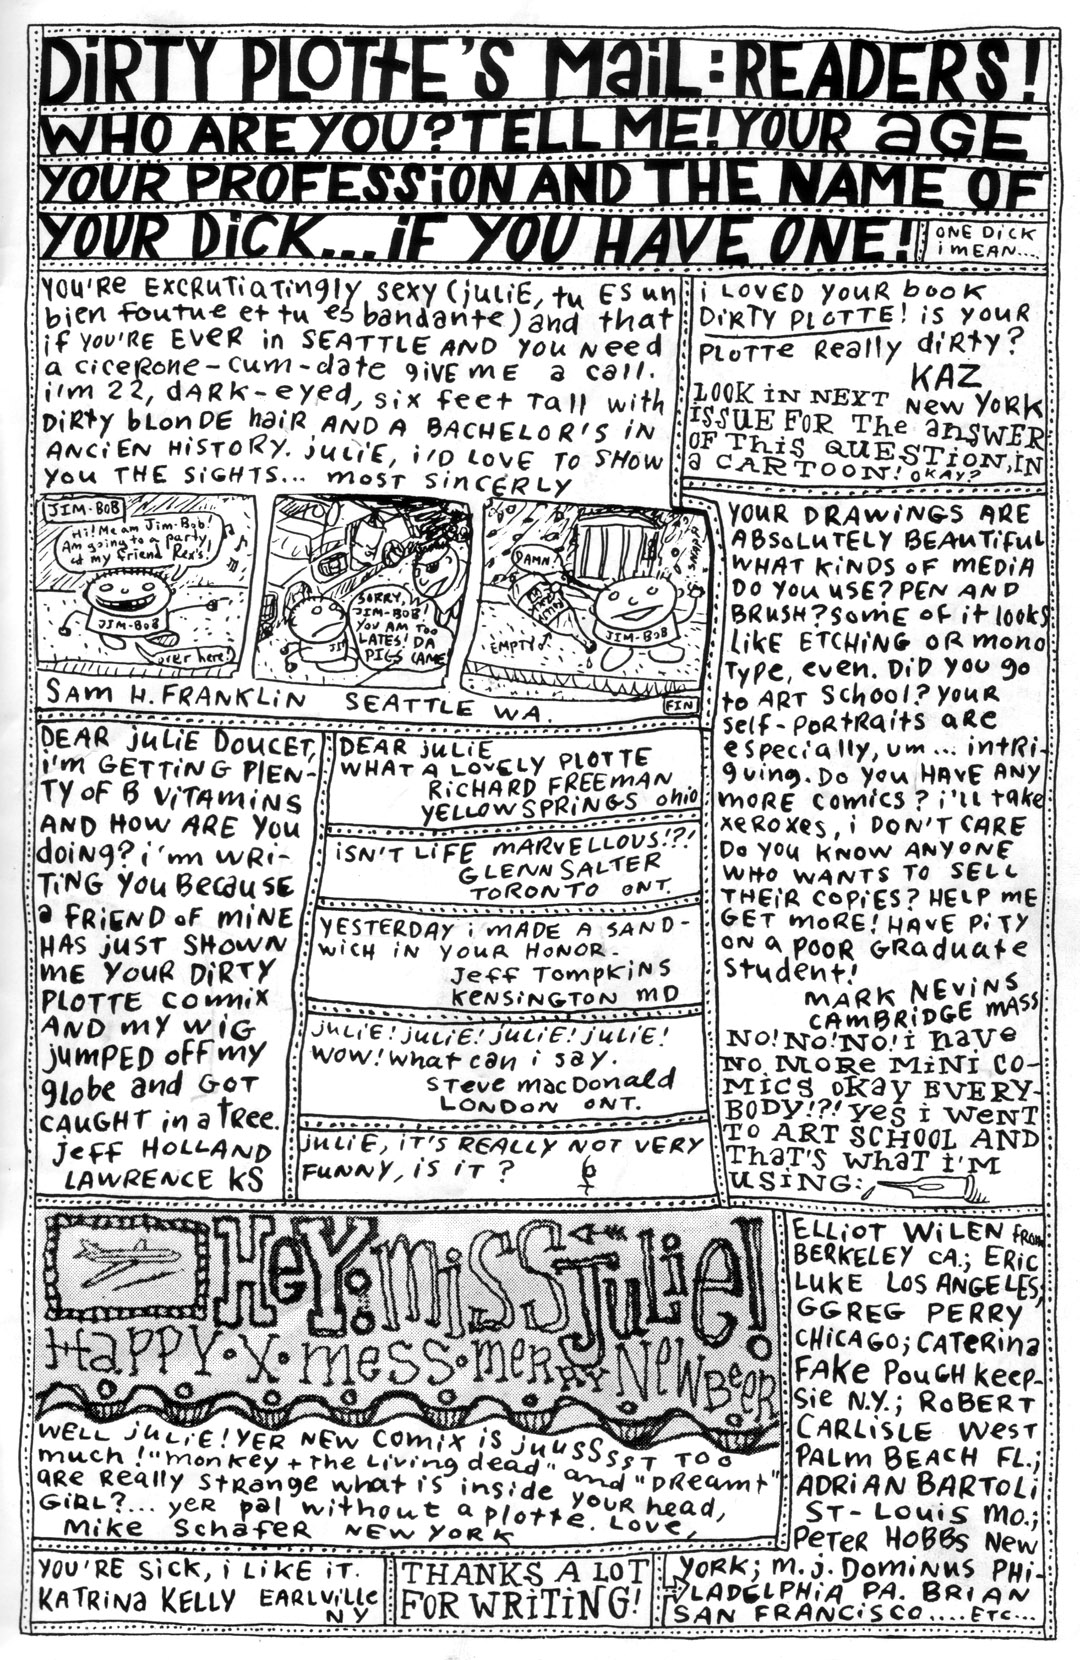 DiRTY PLOTTE'S MaiL: READERS!
WHO ARE YOU? TELL ME! YOUR aGE
YOUR PROFESSiON AND THE NAME OF
YOUR DiCK... iF YOU HAVE ONE!
ONE DICK
i MEAN....
YOU'RE EXCRUTiaTiNgly sexy (juLiE, tu ES un
bien foutue et tu es bandante) and that
if YOU'RE EVER in SEATTLE AND YOU NEEd
a cicerone-cum-date giVE ME a call.
i'm 22, dARK-eyed, six feet Tall with
DiRTY bloNDE haiR AND A BACHELOR'S iN
ANCiEN HiSTORY. juLiE, i'D LOVE TO SHOW
YOU THE SiGHTS... MOST SiNCERLY
JIM-BOB
Hi! Me am Jim-Bob!
Am going to a party,
at my friend Rex's!
JIM-BOB
over here!
SORRY,
JIM-BOB!
YOU AM TOO
LATES! DA
PIGS CAME!
JIM
DAMN
EMPTY
JIM-BOB
FIN
SAM H. FRANKLiN SEATTLE WA.
i LOVED YOUR book
DiRTY PLOTTE! iS YOUR
PLOTTE Really diRTy?
KAZ
New YORK
LOOK iN NEXT
ISSUE FOR The aNSWER
OF THiS QUESTiON, iN
a CARTOON! OKAY?
YOUR DRAWiNGS ARE
ABSOLUTELY BEAUTiFUL
WHAT KiNDS OF MEDiA
DO YOU USE? PEN AND
BRUSH? SOME OF iT looks
LiKE ETCHiNG OR mono
Type, even. DiD YOU go
to ART School? YOUR
self-PORTRAiTS aRE
especially, um... iNTRi-
guing. Do you HAVE ANY
MORE COMiCS? i'll Take
xeroxes, i DON'T CARE
Do YOU KNOW ANYONE
WHO WANTS TO SELL
THEiR COPiES? HELP ME
GET MORE! HAVE PiTY
ON a POOR GRaduate
student!
MARK NEViNS
CAMBRiDGE MASS
NO! NO! NO! i have
NO MORE MiNi CO-
MiCS OKay EVERY-
BODY!?! yes i WENT
TO ART SCHOOL AND
THaT'S WhaT i'M
USiNG:
DEAR juLiE DOUCET,
i'm GETTiNG PlEN-
TY of B ViTAMiNS
AND HOW ARE YOU
doing? i'm WRi-
TiNG YOU BECause
a FRiEND of MiNE
HAS just SHOWN
ME YOUR DiRTY
PLOTTE comMix
AND my WiG
JUMPED off my
globe and GOT
CAUGHT in a TREE.
jeff HOLLAND
LAWRENCE KS
DEAR juLiE
WHAT A LOVELY PLOTTE
RiCHARD FREEMAN
YELLOWSPRiNGS ohio
iSN'T LiFE MARVELLOUS!?!
GLENN SALTER
TORONTO ONT.
YESTERDAY i MADE A SAND-
WiCH iN YOUR HONOR.
Jeff TOMPKiNS
KENSiNGTON MD
juLiE! juLiE! juLiE! juLiE!
WOW! what can i say.
STeve macDonald
LONDON ONT.
juLiE, iT'S REALLY NOT VERY
FUNNY, iS iT?
HeY! MiSS JuLie!
HaPPY·X·MESS·MERRY NeWBeeR
WELL juLiE! YER NEW COMiX iS juuSSSST TOO
much! "monkey + the Living dead" and "DREAMT"
aRe REally STRaNge what is inside YOUR head,
GiRL?... yer pal without a plotte. Love,
Mike Schafer NEW YORK
ELLiOT WiLEN from
BERKELEY CA.; ERiC
LUKE LOS ANGELES;
GGREG PERRY
CHiCAGO; CATERiNa
FAKE POUGHKEEP-
Sie N.Y.; ROBERT
CARLiSLE WeST
PALM BEACH FL.;
ADRiAN BARTOLi
ST-Louis MO.;
PETER HOBBS New
YORK; M.J. DOMiNUS PHi-
LADELPHiA PA. BRiAN
SAN FRANCiSCO.... ETC...
YOU'RE SiCK, i LiKE iT.
KATRiNa KELLY EARLViLLE
NY
THANKS A LOT
FOR WRiTiNG!